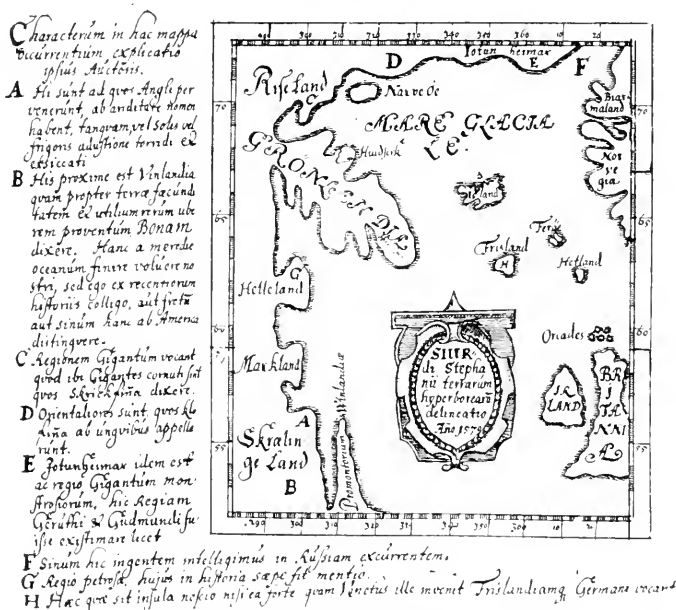 Characterum in hac mappa
occurrentium, explicatio
ipsius Auctoris.
A Hi sunt ad quos Angli per
venerunt, ab ariditate nomen
habent, tanquam vel Solis vel
frigoris adustione torridi et
exsiccati
B His proxime est Vinlandia
quam propter terræ fœcundi
tatem et utilium rerum ube
rem proventum Bonam
dixere. Hanc a meredie
oceanum finire voluere no
stri, sed ego ex recentiorum
historiis colligo, aut fretū
aut sinum hanc ab America
distinguere.
C Regionem Gigantum vocant
quod ibi Gigantes cornuti sint
quos Skrickfiña dixere.
D Orientaliores sunt, quos Klo
fiña ab unguibus appella
runt.
E Jotunheimar idem est
ac regio Gigantum mon
strosorum, hic Regiam
Geruthi & Gudmundi fu
isse existimare licet
F Sinum hic ingentem intelligimus in Russiam excurrentem.
G Regio petrosa, hujus in historia sæpe fit mentio.
H Hæc quæ sit insula nescio nisi ea forte quam Venetus ille invenit Frislandiamq Germani vocant
300
310
320
330
340
350
360
10
20
D
Jotun heimar
E
F
Riseland
C
Narve Oe
Biar
maland
MARE GLACIA
LE.
GRONLANDIA
Huidserk
Nor
ve
gia.
Island
Ferø
Frisland
H
Hetland
G
Helleland
Orcades
Markland
SIURDI
di Stepha
nii terrarum
hyperborearū
delineatio
Año 1570
IR
LAND
BRI
TA
NNI
A
A
Skralin
ge Land
B
Promontorium Vinlandiæ
70
65
60
55
70
65
60
55
290
300
310
320
330
340
350
360
10
20